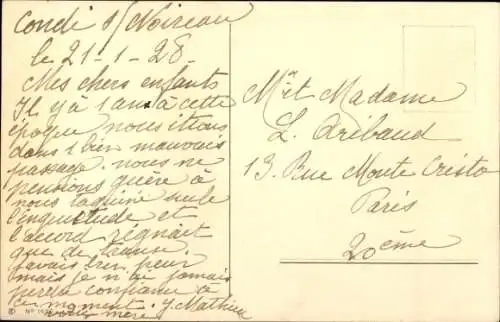 Condé s/ Noireau
le 21-1-28
Mes chers enfants
Il y a 1 ans à cette
époque nous étions
dans 1 bien mauvais
passage. nous ne
pensions guère à
nous taquiner seule
l'inquiétude et
l'accord régnait
que de
j'avais bien peur
mais je n'ai jamais
perdu confiance à
ce moment. J. Mathieu
votre mère.
Mr et Madame
L. Aribaud
13. Rue Monte Cristo
Paris
20ème